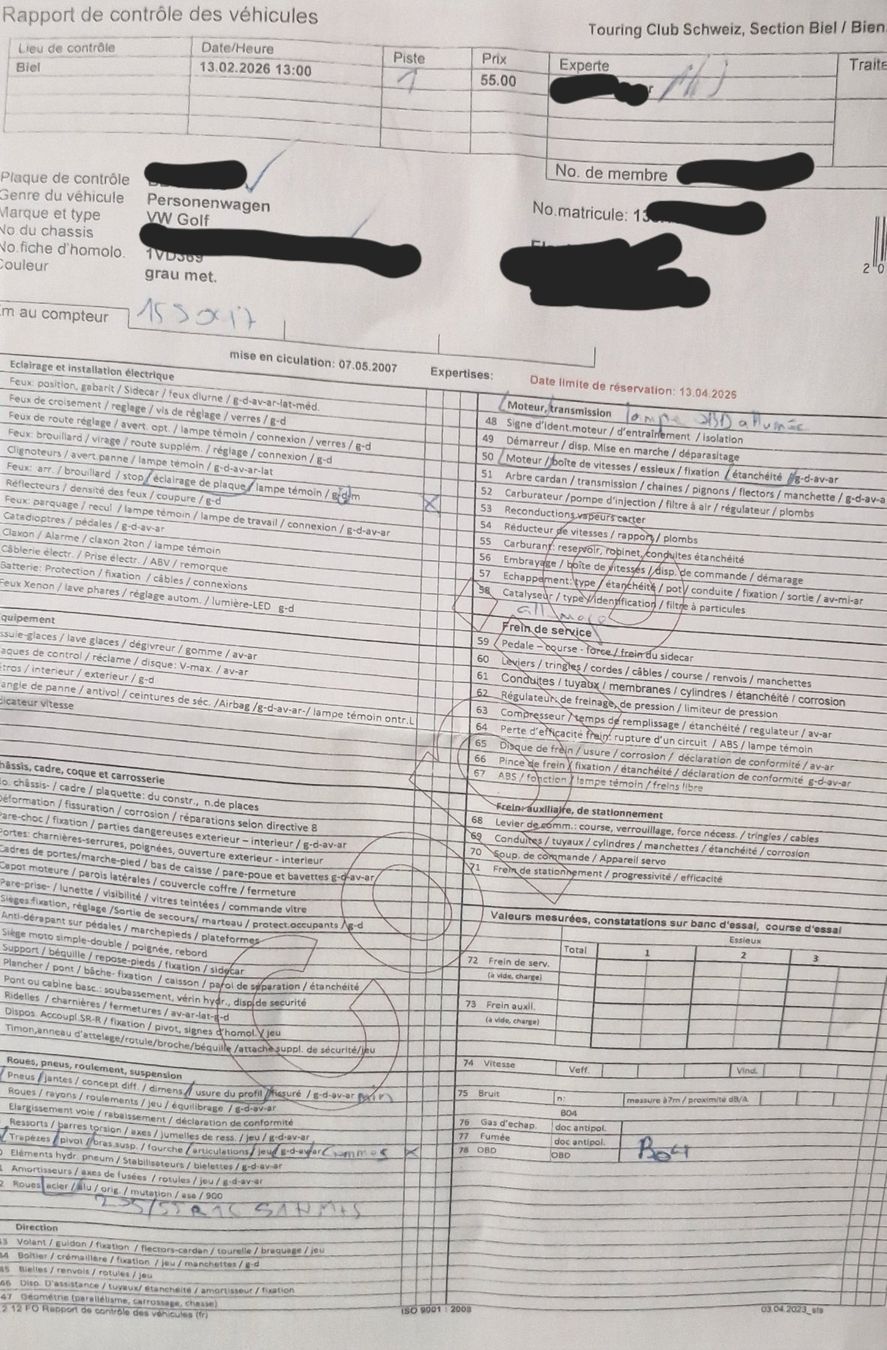 Rapport de contrôle des véhicules
Touring Club Schweiz, Section Biel / Bien
Lieu de contrôle Date/Heure Piste Prix Experte Traite
Biel 13.02.2026 13:00 1 55.00
No. de membre
Plaque de contrôle
Genre du véhicule Personenwagen
Marque et type VW Golf
No du chassis
No.fiche d'homolo. 1VD369
Couleur grau met.
No.matricule: 13
2 0
m au compteur
mise en ciculation: 07.05.2007 Expertises: Date limite de réservation: 13.04.2026
Eclairage et installation électrique
Feux: position, gabarit / Sidecar / feux diurne / g-d-av-ar-lat-méd.
Feux de croisement / reglage / vis de réglage / verres / g-d
Feux de route réglage / avert. opt. / lampe témoin / connexion / verres / g-d
Feux: brouillard / virage / route supplém. / réglage / connexion / g-d
Clignoteurs / avert.panne / lampe témoin / g-d-av-ar-lat
Feux: arr. / brouillard / stop / éclairage de plaque / lampe témoin / g-d-m
Réflecteurs / densité des feux / coupure / g-d
Feux: parquage / recul / lampe témoin / lampe de travail / connexion / g-d-av-ar
Catadioptres / pédales / g-d-av-ar
Claxon / Alarme / claxon 2ton / lampe témoin
Câblerie électr. / Prise électr. / ABV / remorque
Batterie: Protection / fixation / câbles / connexions
Feux Xenon / lave phares / réglage autom. / lumière-LED g-d
quipement
ssuie-glaces / lave glaces / dégivreur / gomme / av-ar
aques de control / réclame / disque: V-max. / av-ar
étros / interieur / exterieur / g-d
angle de panne / antivol / ceintures de séc. /Airbag /g-d-av-ar-/ lampe témoin ontr.L
dicateur vitesse
hâssis, cadre, coque et carrosserie
o. châssis- / cadre / plaquette: du constr., n.de places
éformation / fissuration / corrosion / réparations selon directive 8
are-choc / fixation / parties dangereuses exterieur – interieur / g-d-av-ar
Portes: charnières-serrures, poignées, ouverture exterieur - interieur
Cadres de portes/marche-pied / bas de caisse / pare-poue et bavettes g-d-av-ar
Capot moteure / parois latérales / couvercle coffre / fermeture
Pare-prise- / lunette / visibilité / vitres teintées / commande vitre
Sièges:fixation, réglage /Sortie de secours/ marteau / protect.occupants /g-d
Anti-dérapant sur pédales / marchepieds / plateformes
Siège moto simple-double / poignée, rebord
Support / béquille / repose-pieds / fixation / sidecar
Plancher / pont / bâche- fixation / caisson / paroi de séparation / étanchéité
Pont ou cabine basc.: soubassement, vérin hydr., disp.de securité
Ridelles / charnières / fermetures / av-ar-lat-g-d
Dispos. Accoupl.SR-R / fixation / pivot, signes d'homol. / jeu
Timon,anneau d'attelage/rotule/broche/béquille /attache suppl. de sécurité/jeu
Roues, pneus, roulement, suspension
Pneus / jantes / concept diff. / dimens / usure du profil / fissuré / g-d-av-ar min
Roues / rayons / roulements / jeu / équilibrage / g-d-av-ar
Elargissement voie / rabaissement / déclaration de conformité
Ressorts / barres torsion / axes / jumelles de ress. / jeu / g-d-av-ar
Trapèzes / pivot / bras.susp. / fourche / articulations / jeu / g-d-av-ar
Eléments hydr. pneum / Stabilisateurs / bielettes / g-d-av-ar
Amortisseurs / axes de fusées / rotules / jeu / g-d-av-ar
2 Roues acier / alu / orig. / mutation / ase / 900
Direction
43 Volant / guidon / fixation / flectors-cardan / tourelle / braquage / jeu
44 Boîtier / crémaillère / fixation / jeu / manchettes / g-d
45 Bielles / renvois / rotules / jeu
46 Disp. D'assistance / tuyaux/ étanchéité / amortisseur / fixation
47 Géométrie (parallélisme, carrossage, chasse)
Moteur, transmission lampe OBD allumée
48 Signe d'Ident.moteur / d'entraînement / isolation
49 Démarreur / disp. Mise en marche / déparasitage
50 Moteur / boîte de vitesses / essieux / fixation / étanchéité / g-d-av-ar
51 Arbre cardan / transmission / chaines / pignons / flectors / manchette / g-d-av-a
52 Carburateur /pompe d'injection / filtre à air / régulateur / plombs
53 Reconductions vapeurs carter
54 Réducteur de vitesses / rapport / plombs
55 Carburant: reservoir, robinet, conduites étanchéité
56 Embrayage / boîte de vitesses / disp. de commande / démarage
57 Echappement: type / étanchéité / pot / conduite / fixation / sortie / av-mi-ar
58 Catalyseur / type / identification / filtre à particules
Frein de service
59 Pedale – course - force / frein du sidecar
60 Leviers / tringles / cordes / câbles / course / renvois / manchettes
61 Conduites / tuyaux / membranes / cylindres / étanchéité / corrosion
62 Régulateur: de freinage, de pression / limiteur de pression
63 Compresseur / temps de remplissage / étanchéité / regulateur / av-ar
64 Perte d'efficacité frein: rupture d'un circuit / ABS / lampe témoin
65 Disque de frein / usure / corrosion / déclaration de conformité / av-ar
66 Pince de frein / fixation / étanchéité / déclaration de conformité g-d-av-ar
67 ABS / fonction / lampe témoin / freins libre
Frein auxiliaire, de stationnement
68 Levier de comm.: course, verrouillage, force nécess. / tringles / cables
69 Conduites / tuyaux / cylindres / manchettes / étanchéité / corrosion
70 Soup. de commande / Appareil servo
71 Frein de stationnement / progressivité / efficacité
Valeurs mesurées, constatations sur banc d'essai, course d'essai
Total Essieux
1 2 3
72 Frein de serv.
(à vide, charge)
73 Frein auxil.
(à vide, charge)
74 Vitesse Veff. Vind.
75 Bruit n: messure à7m / proximité dB/A
B04
76 Gas d'echap. doc antipol.
77 Fumée doc antipol. B04
78 OBD OBD
2 12 FO Rapport de contrôle des véhicules (fr) ISO 9001 : 2008 03.04.2023_sfs